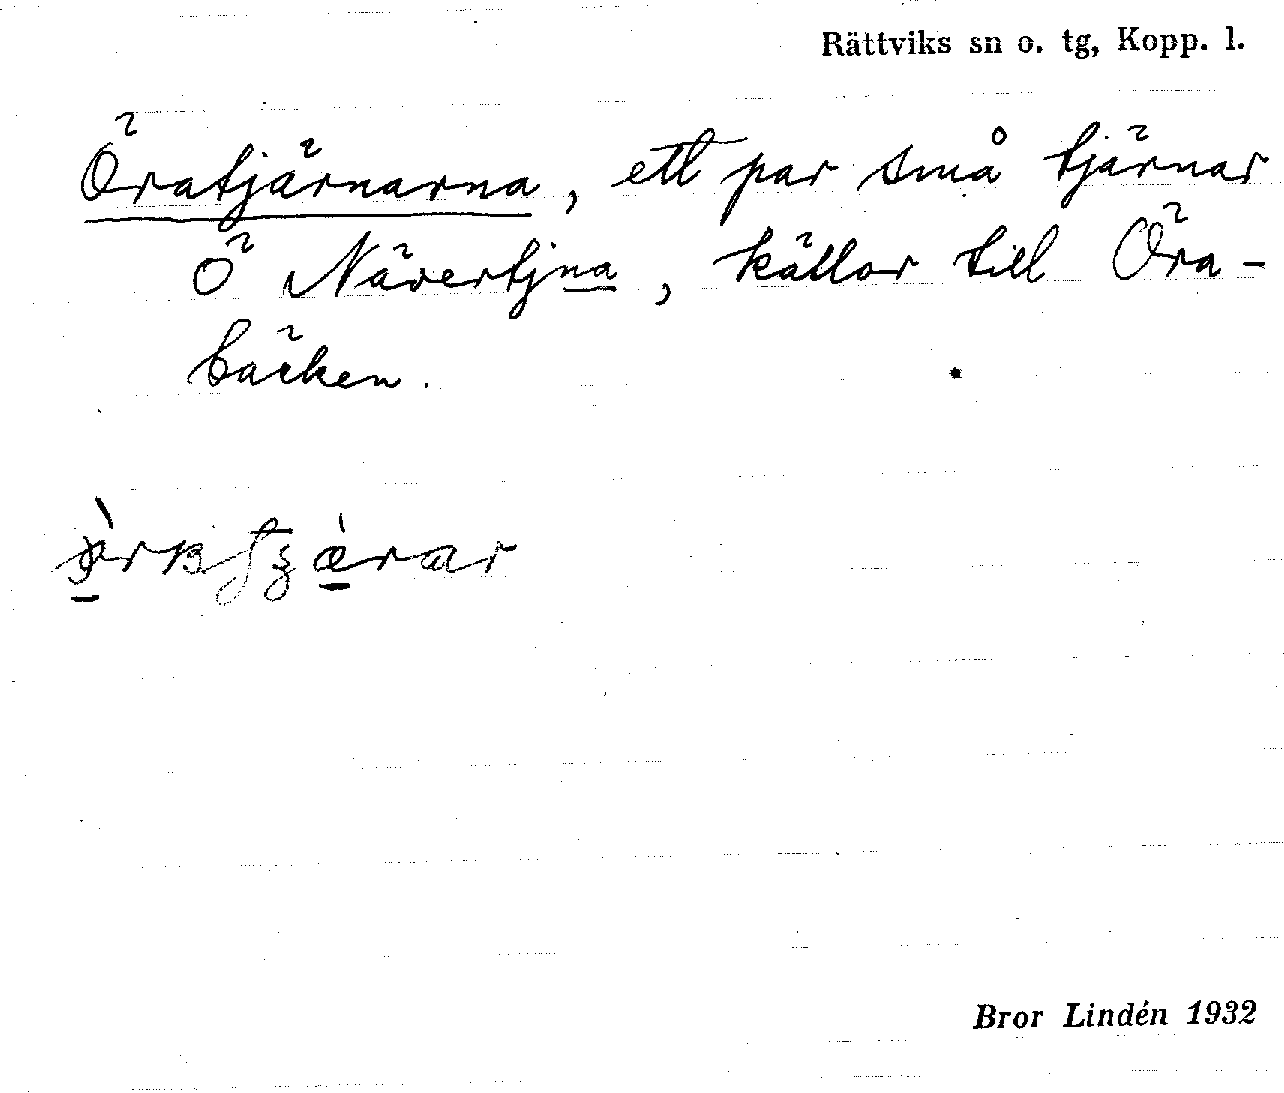 Rättviks sn o. tg, Kopp. l.
Öratjärnarna, ett par små tjärnar
Ö Nävertjna, källor till Öra-
bäcken.
Bror Lindén 1932